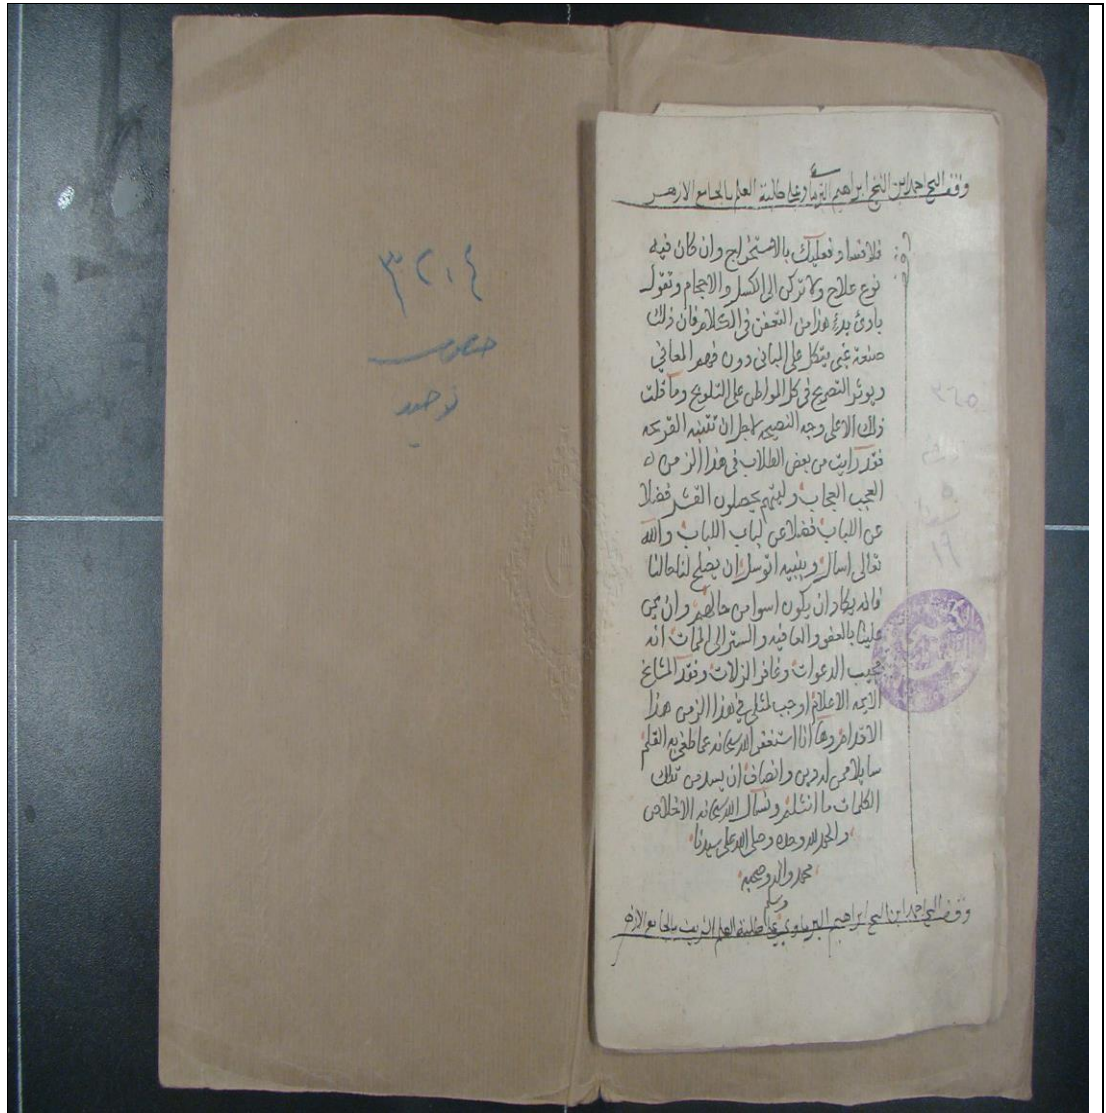 وقف الشيخ احمد ابن الشيخ ابراهيم البرماوي على طلبة العلم بالجامع الازهر
فلاقسا وفعليك بالاستخراج وان كان فيه
نوع علاج ولا تركن الى الكسل والاحجام وتقول
بادئ بدء هذا من التعمق في الكلام فان ذلك
صنعة غبي يتكل على المباني دون فهم المعاني
ويوثر التصريح في كل المواطن على التلويح وما قلت
ذلك الا على وجه النصيحه لاجل ان تتنبه القريحه
فقد رايت من بعض الطلاب في هذا الزمن
العجب العجاب وليتهم يحصلون القشر فضلا
عن اللباب فضلا عن لباب اللباب والله
تعالى اسال وبنبيه اتوسل ان يصلح لنا حالنا
فانه يكاد ان يكون اسوا من حالهم وان يمن
علينا بالعفو والعافيه والستر الى الممات انه
مجيب الدعوات وغافر الزلات وفقد المشايخ
الايمه الاعلام اوجب لمثلي في هذا الزمن هذا
الاقدام وها انا استغفر الله سبحانه مما طغى به القلم
سايلا ممن له دين وانصاف ان يسد من تلك
الكلمات ما انثلم ونسال الله سبحانه الاخلاص
والحمد لله وحده وصلى الله على سيدنا
محمد واله وصحبه
وسلم
وقف الشيخ احمد ابن الشيخ ابراهيم البرماوي على طلبة العلم الشريف بالجامع الازهر
٣٢٠٤
توحيد
٣٦٥
١٩